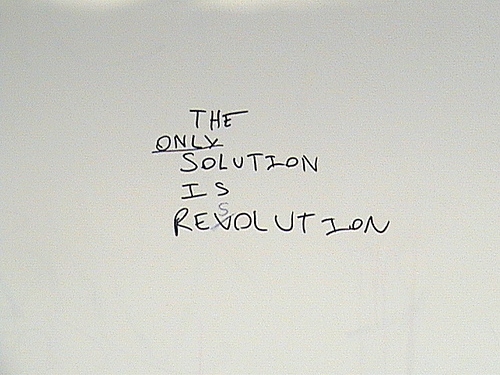 THE
ONLY
SOLUTION
IS
S
REVOLUTION